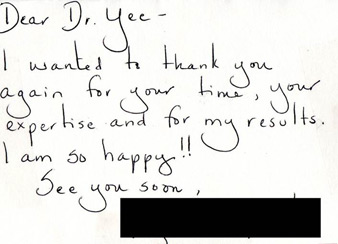 Dear Dr. Yee -
I wanted to thank you
again for your time, your
expertise and for my results.
I am so happy!!
See you soon,